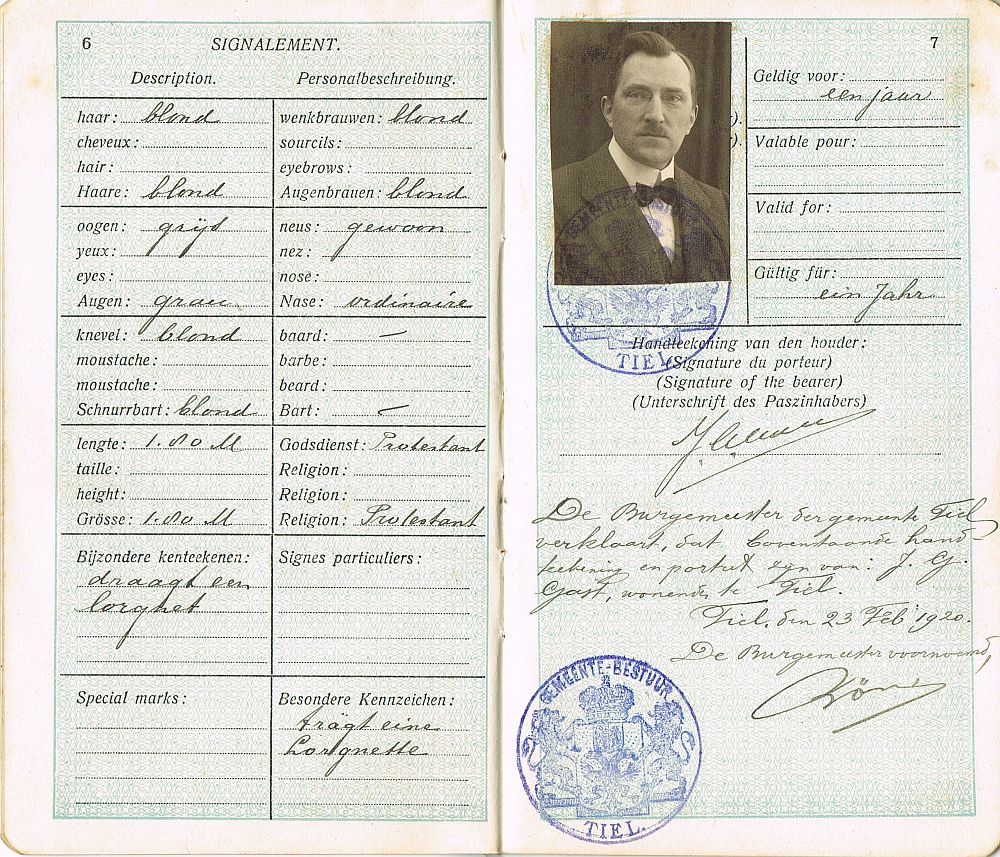 6
SIGNALEMENT.
Description. Personalbeschreibung.
haar: blond
cheveux:
hair:
Haare: blond
wenkbrauwen: blond
sourcils:
eyebrows:
Augenbrauen: blond
oogen: grijs
yeux:
eyes:
Augen: grau
neus: gewoon
nez:
nose:
Nase: ordinaire
knevel: blond
moustache:
moustache:
Schnurrbart: blond
baard: —
barbe:
beard:
Bart: —
lengte: 1.80 M
taille:
height:
Grösse: 1.80 M
Godsdienst: Protestant
Religion:
Religion:
Religion: Protestant
Bijzondere kenteekenen:
draagt een
lorgnet
Signes particuliers:
Special marks:
Besondere Kennzeichen:
trägt eine
Lorgnette
7
Geldig voor:
een jaar
Valable pour:
Valid for:
Gültig für:
ein Jahr
GEMEENTE-BESTUUR
TIEL
Handteekening van den houder:
(Signature du porteur)
(Signature of the bearer)
(Unterschrift des Paszinhabers)
De Burgemeester der gemeente Tiel
verklaart, dat bovenstaande hand-
teekening en portret zijn van: J. G.
Gast, wonende te Tiel.
Tiel, den 23 Feb 1920.
De Burgemeester voornoemd,
GEMEENTE-BESTUUR
TIEL.